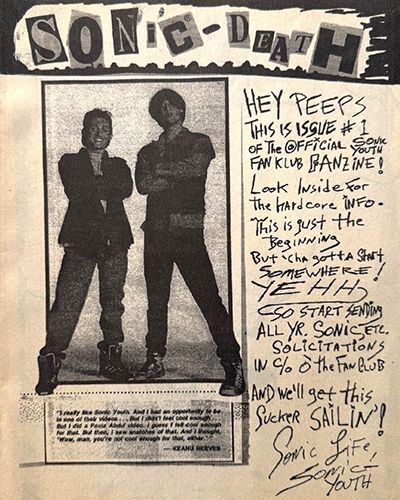 SONIC-DEATH
HEY PEEPS
THIS IS ISSUE #1
OF THE OFFICIAL SONIC YOUTH
FAN KLUB FANZINE!
LOOK INSIDE FOR
THE HARDCORE INFO.
THIS IS JUST THE
BEGINNING
BUT 'CHA GOTTA START
SOMEWHERE!
YEHH
SO START SENDING
ALL YR. SONIC, ETC.
SOLICITATIONS
IN C/O O' THE FAN CLUB
AND WE'LL GET THIS
SUCKER SAILIN'!
SONIC LIFE,
SONIC-
YOUTH
"I really like Sonic Youth. And I had an opportunity to be
in one of their videos . . . But I didn't feel cool enough . . .
But I did a Paula Abdul video. I guess I felt cool enough
for that. But then, I saw snatches of that. And I thought,
'Wow, man, you're not cool enough for that, either.'"
— KEANU REEVES